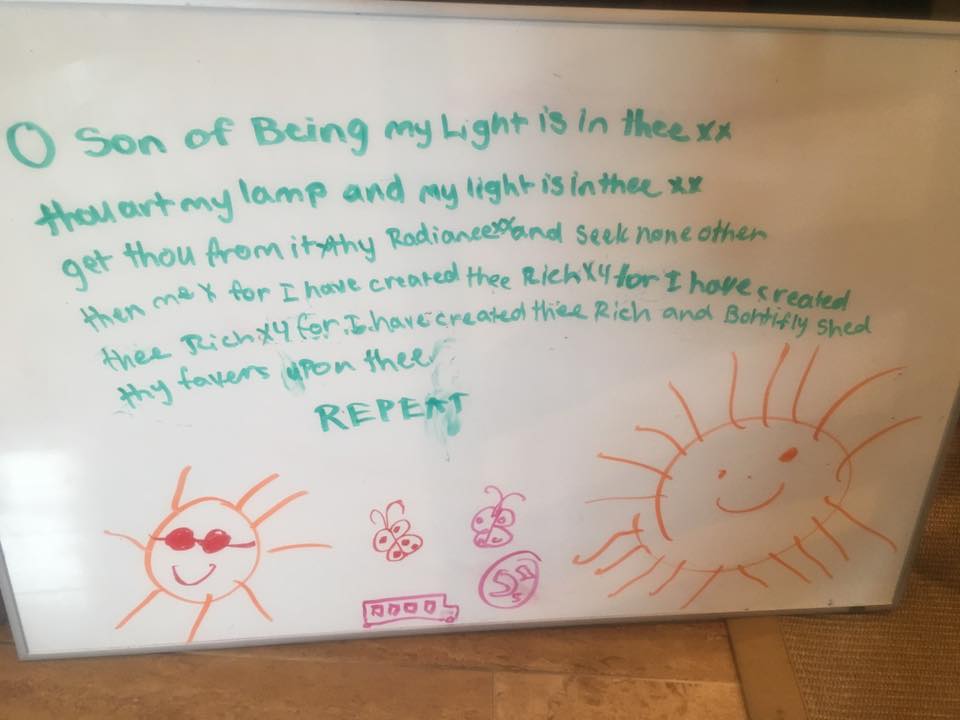 O Son of Being my Light is in thee xx
thou art my lamp and my light is in thee xx
get thou from it thy Radiance xx and seek none other
then me x for I have created thee Rich x4 for I have created
thee Rich x4 for I have created thee Rich and Bohtifly shed
thy favers upon thee
REPEAT